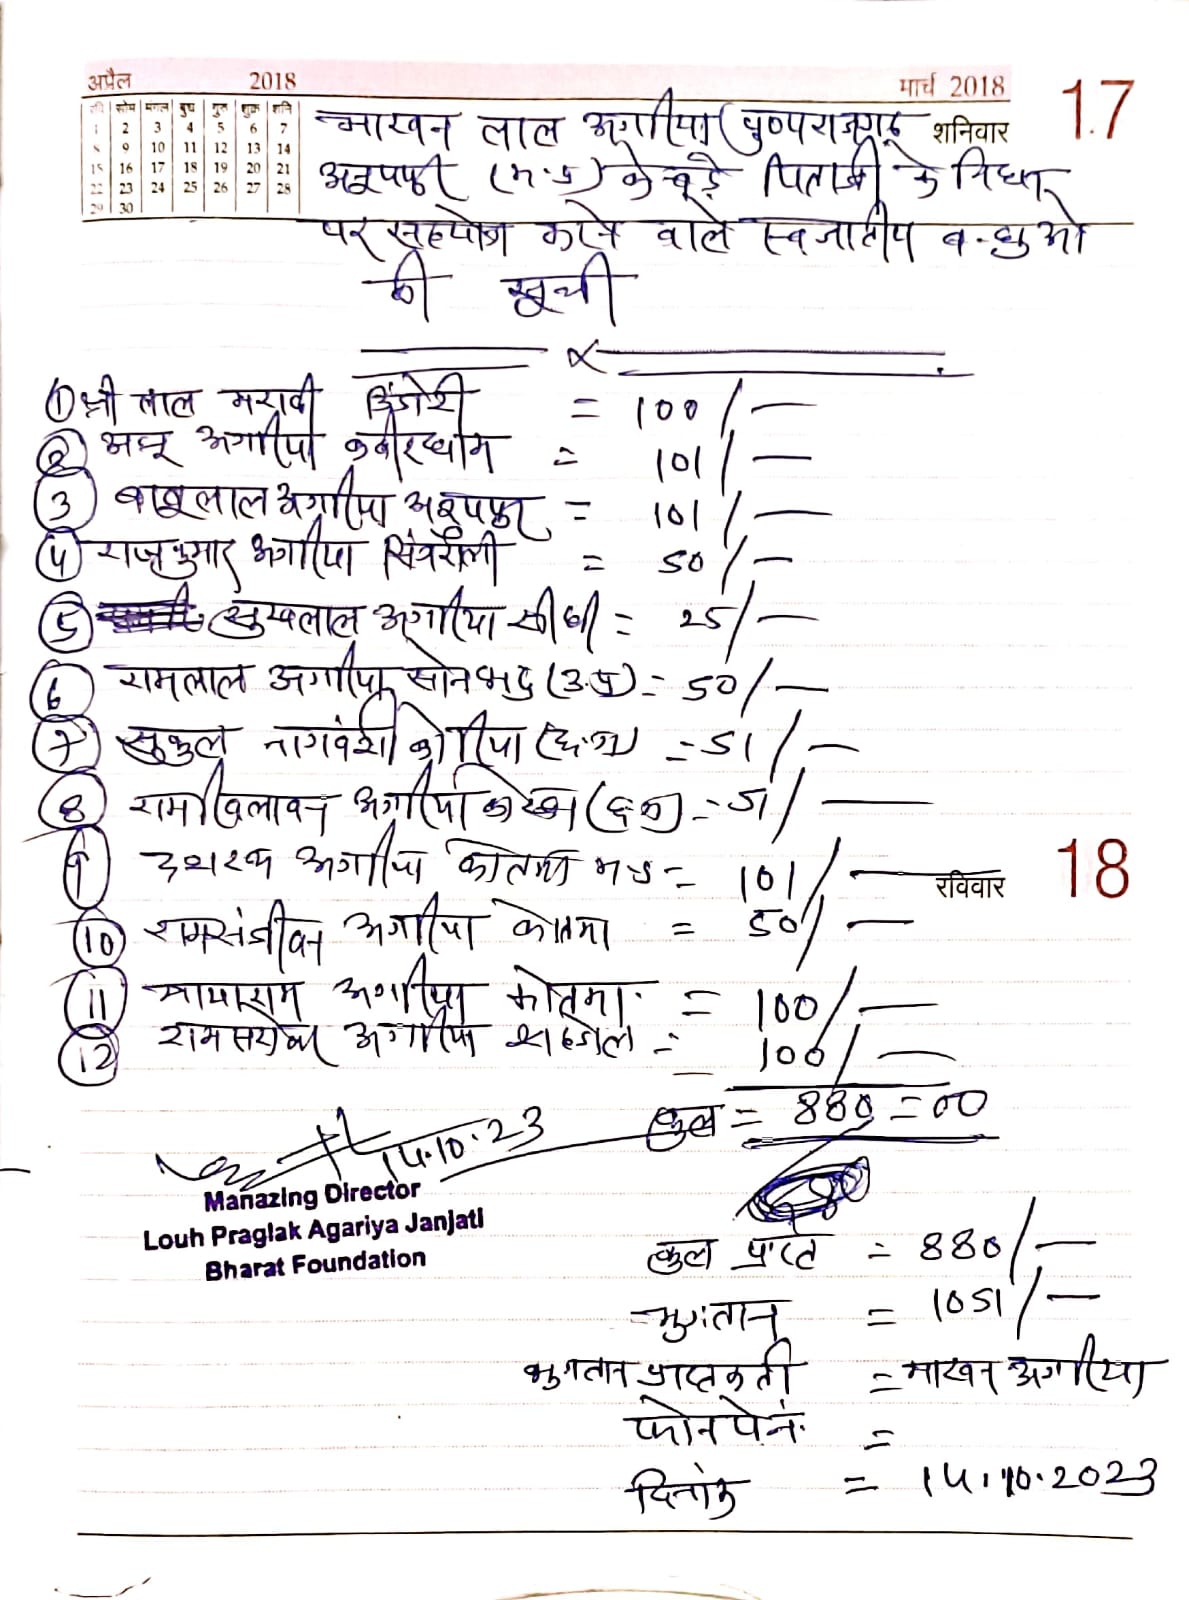 अप्रैल 2018 मार्च 2018 17
सोम मंगल बुध गुरु शुक्र शनि
1 2 3 4 5 6 7
9 10 11 12 13 14
15 16 17 18 19 20 21
22 23 24 25 26 27 28
29 30
माखन लाल अगरिया (पुष्पराजगढ़ शनिवार
अनूपपुर (म.प्र) के बूढ़े पिताजी के निधन
पर सहयोग करने वाले स्वजातीय बन्धुओ
की सूची
① श्री लाल मरावी डिंडोरी = 100/-
② अगरिया कबीरधाम = 101/-
③ बाबूलाल अगरिया अनूपपुर = 101/-
④ राजकुमार अगरिया सिंगरौली = 50/-
⑤ सुखलाल अगरिया सीधी = 25/-
⑥ रामलाल अगरिया सोनभद्र (उ.प्र) = 50/-
⑦ सुकुल नागवंशी कोरिया (छ.ग) = 51/-
⑧ रामखिलावन अगरिया = 51/-
⑨ दशरथ अगरिया कोतमा = 101/-
रविवार 18
⑩ रामसंजीवन अगरिया कोतमा = 50/-
⑪ मायाराम अगरिया कोतमा = 100/-
⑫ अगरिया शहडोल = 100/-
कुल = 880=00
14.10.23
Manazing Director
Louh Praglak Agariya Janjati
Bharat Foundation
कुल प्राप्त = 880/-
भुगतान = 1051/-
भुगतान प्राप्तकर्ता = माखन अगरिया
फोन पे नं. =
दिनांक = 14.10.2023